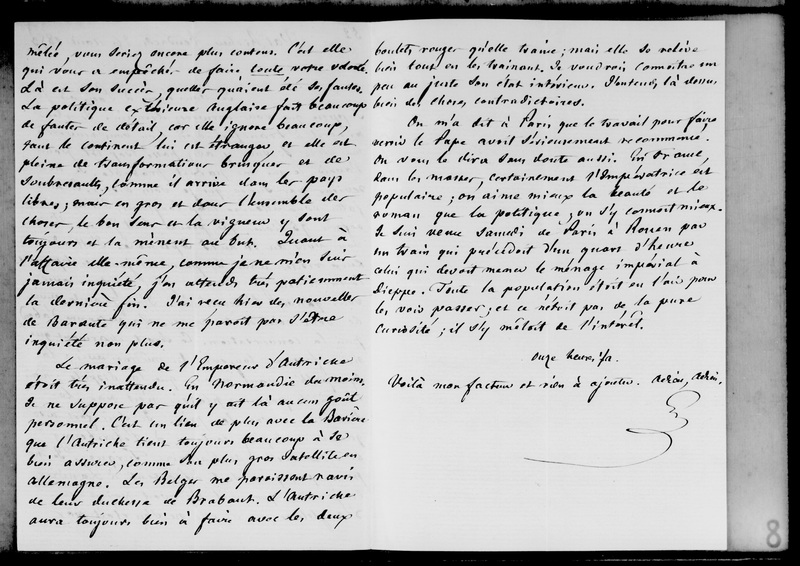 mêlée, vous seriez encore plus content. C'est elle
qui vous a empêché de faire toute votre volonté.
Là est son succès, quelles qu'aient été ses fautes.
La politique extérieure Anglaise fait beaucoup
de fautes de détail, car elle ignore beaucoup,
tant le continent lui est étranger, et elle est
pleine de transformations brusques et de
soubresauts, comme il arrive dans les pays
libres; mais en gros et dans l'ensemble des
choses, le bon sens et la vigueur y sont
toujours et la mènent au but. Quant à
l'affaire elle-même, comme je ne m'en suis
jamais inquiété, j'en attends très patiemment
la dernière fin. J'ai reçu hier des nouvelles
de Barante qui ne me paroît pas s'être
inquiété non plus.
Le mariage de l'Empereur d'Autriche
étoit très inattendu. En Normandie du moins.
Je ne suppose pas qu'il y ait là aucun goût
personnel. C'est un lien de plus avec la Bavière
que l'Autriche tient toujours beaucoup à se
bien assurer, comme son plus gros satellite en
allemagne. Les Belges me paroissent ravis
de leur duchesse de Brabant. L'Autriche
aura toujours bien à faire avec les deux
boulets rouges qu'elle traine; mais elle se relève
bien tout en les trainant. Je voudrois connoître un
peu au juste son état intérieur. J'entends là dessus
bien des choses contradictoires.
On m'a dit à Paris que le travail pour faire
venir le Pape avoit sérieusement recommencé.
On vous le dira sans doute aussi. En France,
dans les masses, certainement l'Impératrice est
populaire; on aime mieux la beauté et le
roman que la politique; on s'y connoit mieux.
Je suis venu samedi de Paris à Rouen par
un train qui précédoit d'un quart d'heure
celui qui devoit mener le ménage impérial à
Dieppe. Toute la population étoit en l'air pour
les voir passer; et ce n'étoit pas de la pure
curiosité; il s'y mêloit de l'intérêt.
Onze heures 1/2.
Voilà mon facteur et rien à ajouter. Adieu, Adieu.
8